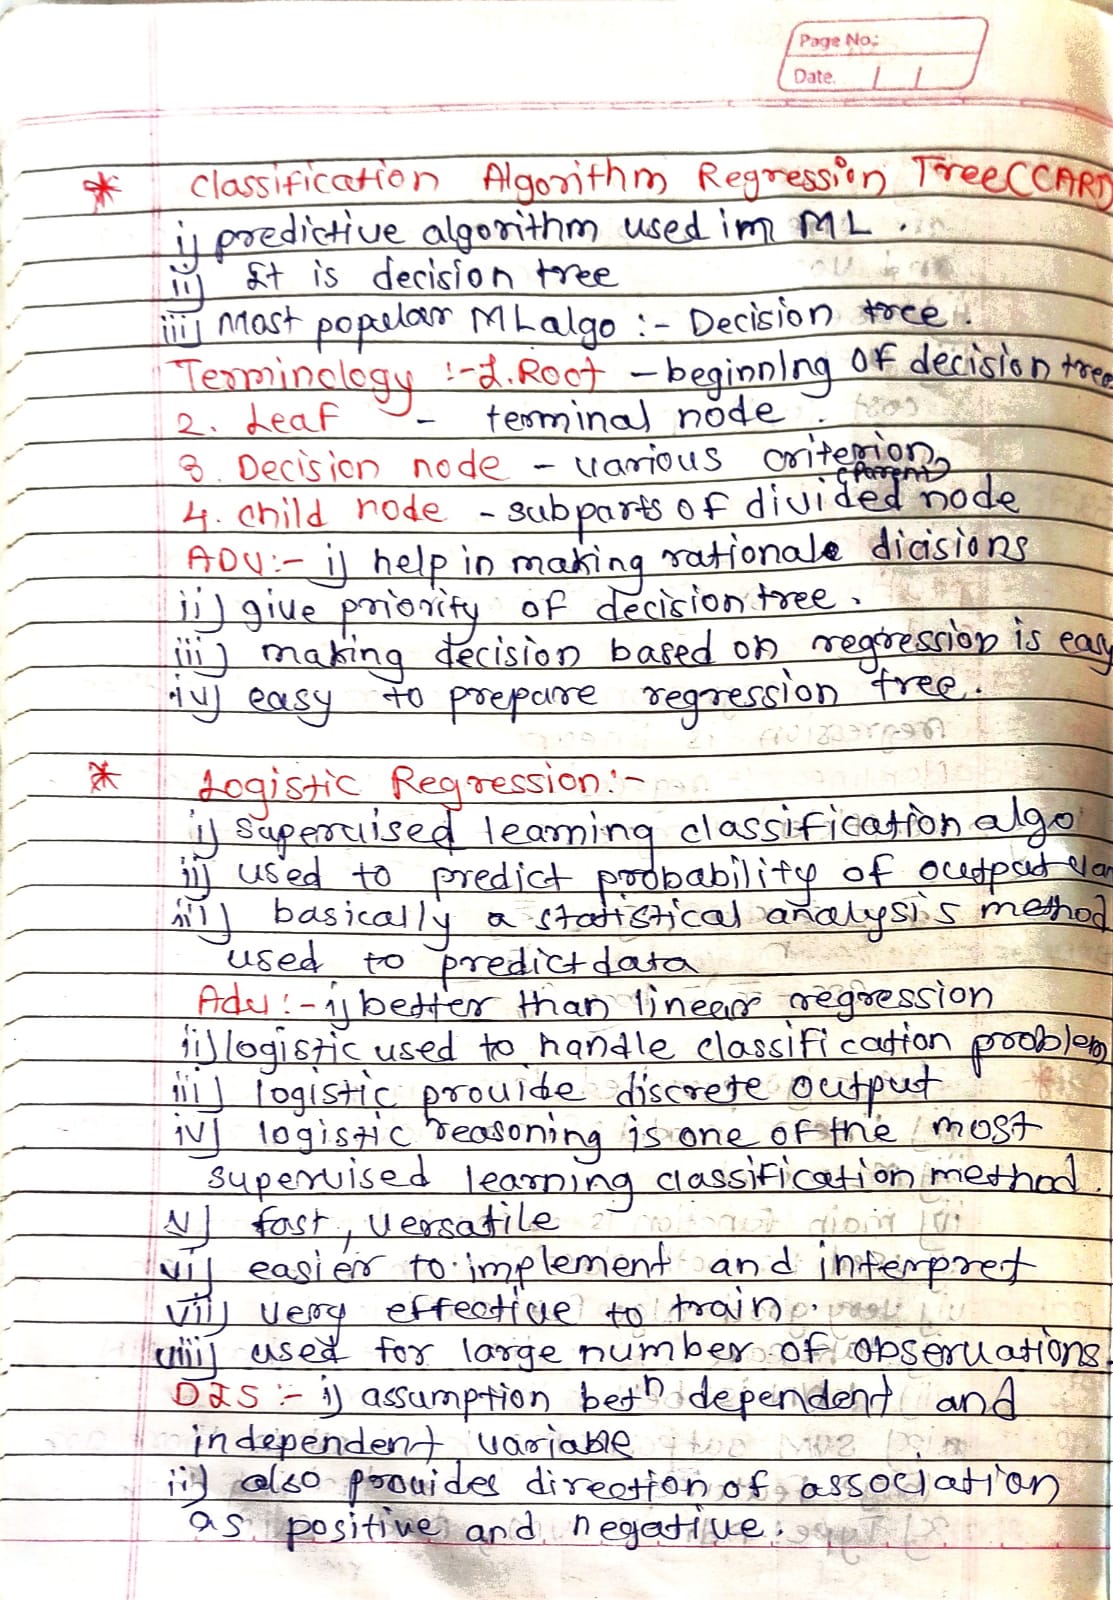 Page No:
Date. / /
* Classification Algorithm Regression Tree (CART)
i) predictive algorithm used im ML.
ii) It is decision tree
iii) Most popular ML algo :- Decision tree.
Terminology :- 1. Root - beginning of decision tree
2. Leaf - terminal node.
3. Decision node - various criterion
(Parent)
4. Child node - subparts of divided node
ADV:- i) help in making rationale dicisions
ii) give priority of decision tree.
iii) making decision based on regression is easy
iv) easy to prepare regression tree.
* Logistic Regression:-
i) Supervised learning classification algo
ii) used to predict probability of output var
iii) basically a statistical analysis method
used to predict data
Adv:- i) better than linear regression
ii) logistic used to handle classification problem
iii) logistic provide discrete output
iv) logistic reasoning is one of the most
supervised learning classification method.
v) fast, versatile
vi) easier to implement and interpret
vii) very effective to train.
viii) used for large number of observations.
DIS:- i) assumption betn dependent and
independent variable
ii) also provides direction of association
as positive and negative.